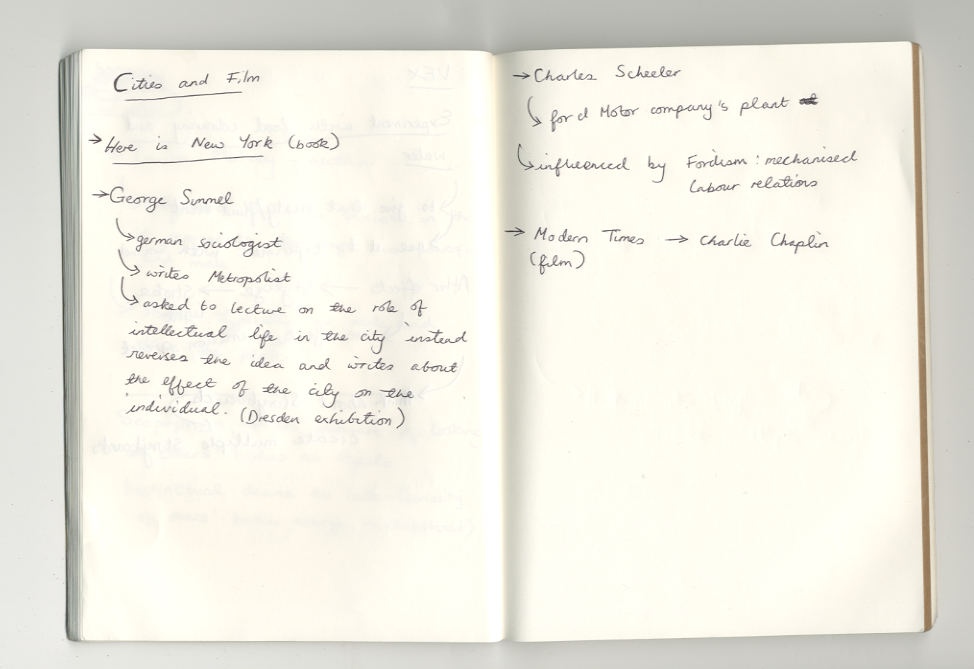 Cities and Film
→ Here is New York (book)
→ George Simmel
↳ german sociologist
↳ writes Metropolist
↳ asked to lecture on the role of
intellectual life in the city instead
reverses the idea and writes about
the effect of the city on the
individual. (Dresden exhibition)
→ Charles Scheeler
↳ ford Motor company's plant
↳ influenced by Fordism : mechanised
labour relations
→ Modern Times → Charlie Chaplin
(film)